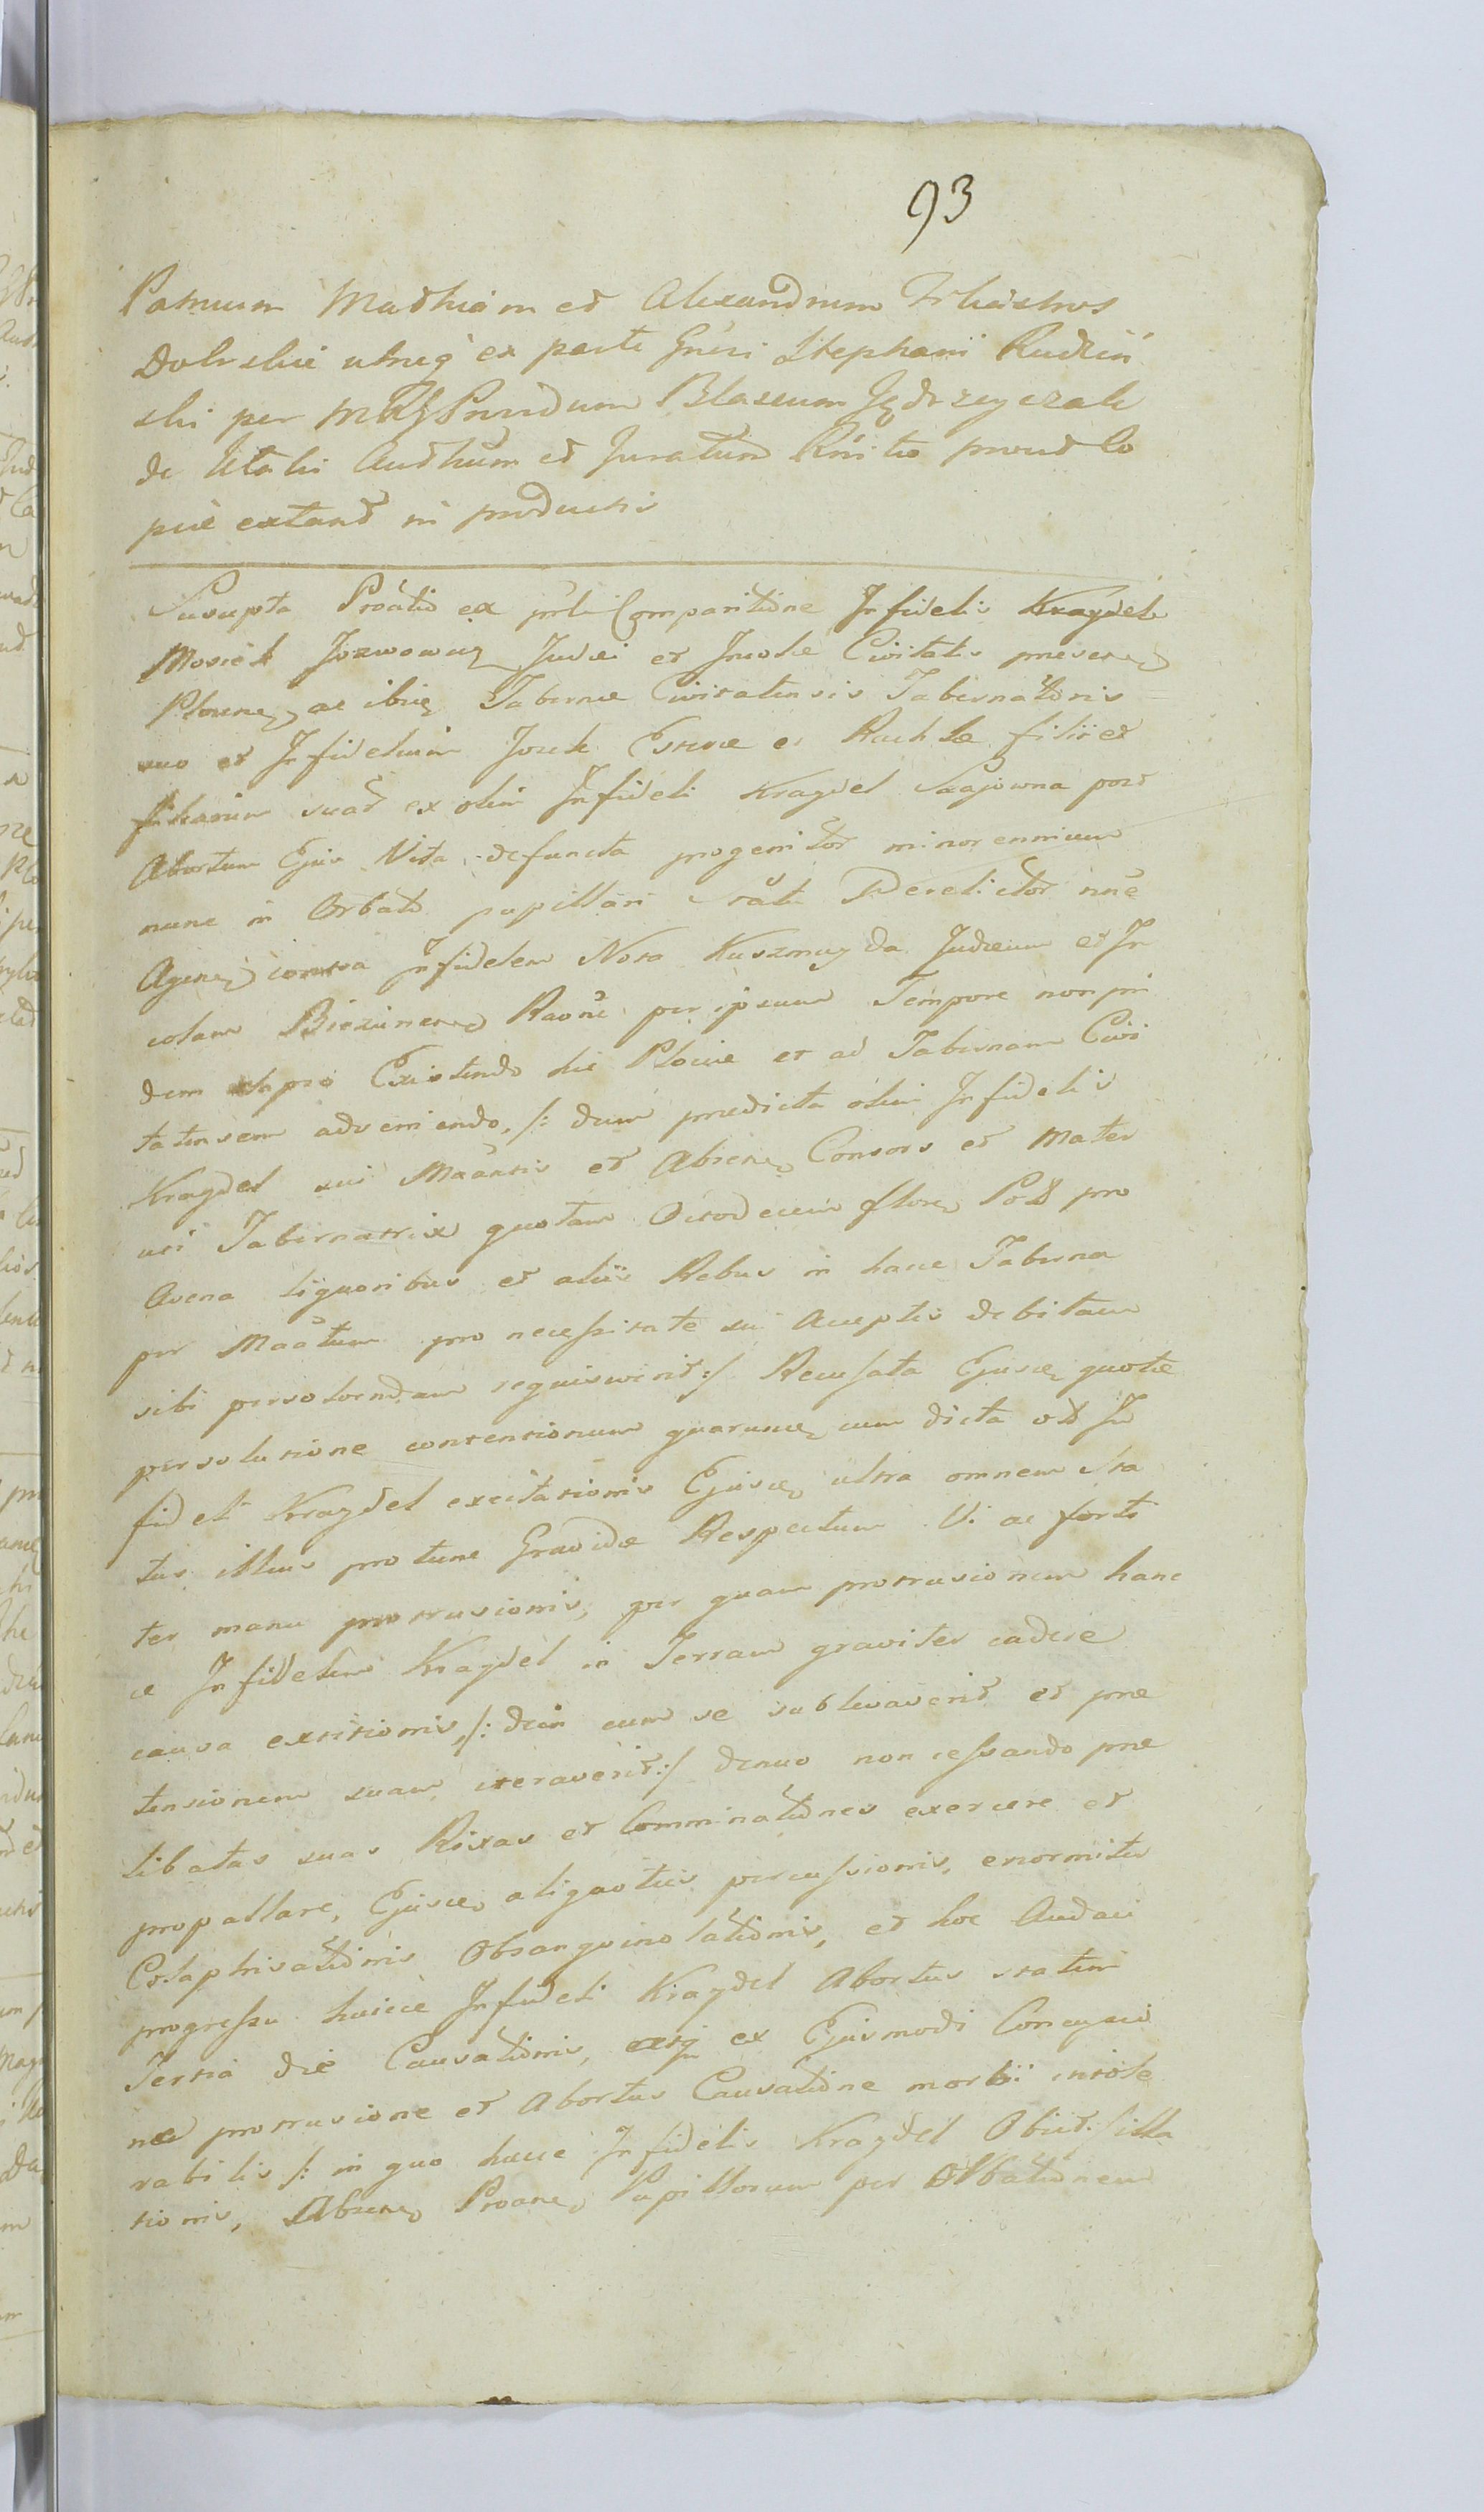 93
Patruum Mathiam et Alexandrum Fr
Dobrskie utrüq ex parte Gnêri Stephani Rudzin
ski per Prudum Blasium Jędrzeyczak
de Authum et Juratum prout Co
piæ extant in productis
Suscepta Proâtio ex Comparitione Infidelis
Mosiek Jozwowicz Judæi et Incolæ Civitatis præsenę
Plocenę ac ibię Tabernæ Civitatensis Tabernatoris
suo et Infidelium Josek Esteræ et Rachlæ filii et
filiarum suar ex olim Infideli Kraydel Szajowna post
Abortum Ejus Vita defuncta progenitor minorennium
nunc in Orbato pupillari Statu Derelictor nõe
Agenę contra Infidelem Nota Kuszmuyda Judæum et In
colam Biezunenę Raõne per ipsum Tempore non pri
dem Existendo hic Plociæ et ad Tabernam Civi
tatensem adveniendo, /: dum prædicta olim Infidelis
Kraydel sui Maântis et Absenę Consors et Mater
uti Tabernatrix quotam Octodecim floreņ Pol pro
Avena liquoribus et aliis Rebus in hacce Taberna
per Maâtum pro necessitate sui Acceptis debitam
sibi persolvendam requisiverit :/ Recusata Ejuscę quotæ
persolutione contentionum quarumcę cum dicta ol In
fideli Kraydel excitationis Ejuscę ultra omnem Sta
tus illius pro tunc Gravidæ Respectum Vi ac forti
ter manu protrusionis, per quam protrusionem hanc
ce Infidelem Kraydel in Terram graviter cadere
causa extitionis, /: dein cum se sublevaverit et præ
tensionem suam iteraverit :/ denuo non cessando præ
libatas suas Rixas et Comminationes exercere et
propallare, Ejuscę aliquoties percussionis, enormiter
Colaphisationis Obsanguinolationis, et hoc Audaci
progressu huicce Infideli Kraydel Abortus statim
Tertia die Causationis, ex Ejusmodi Concussio
næ protrusione et Abortus Causatione morbi intole
rabilis /: in quo hæcce Infidelis Kraydel Obiit :/ illa
tionis, Absenę Proanę Pupillorum per Orbationem